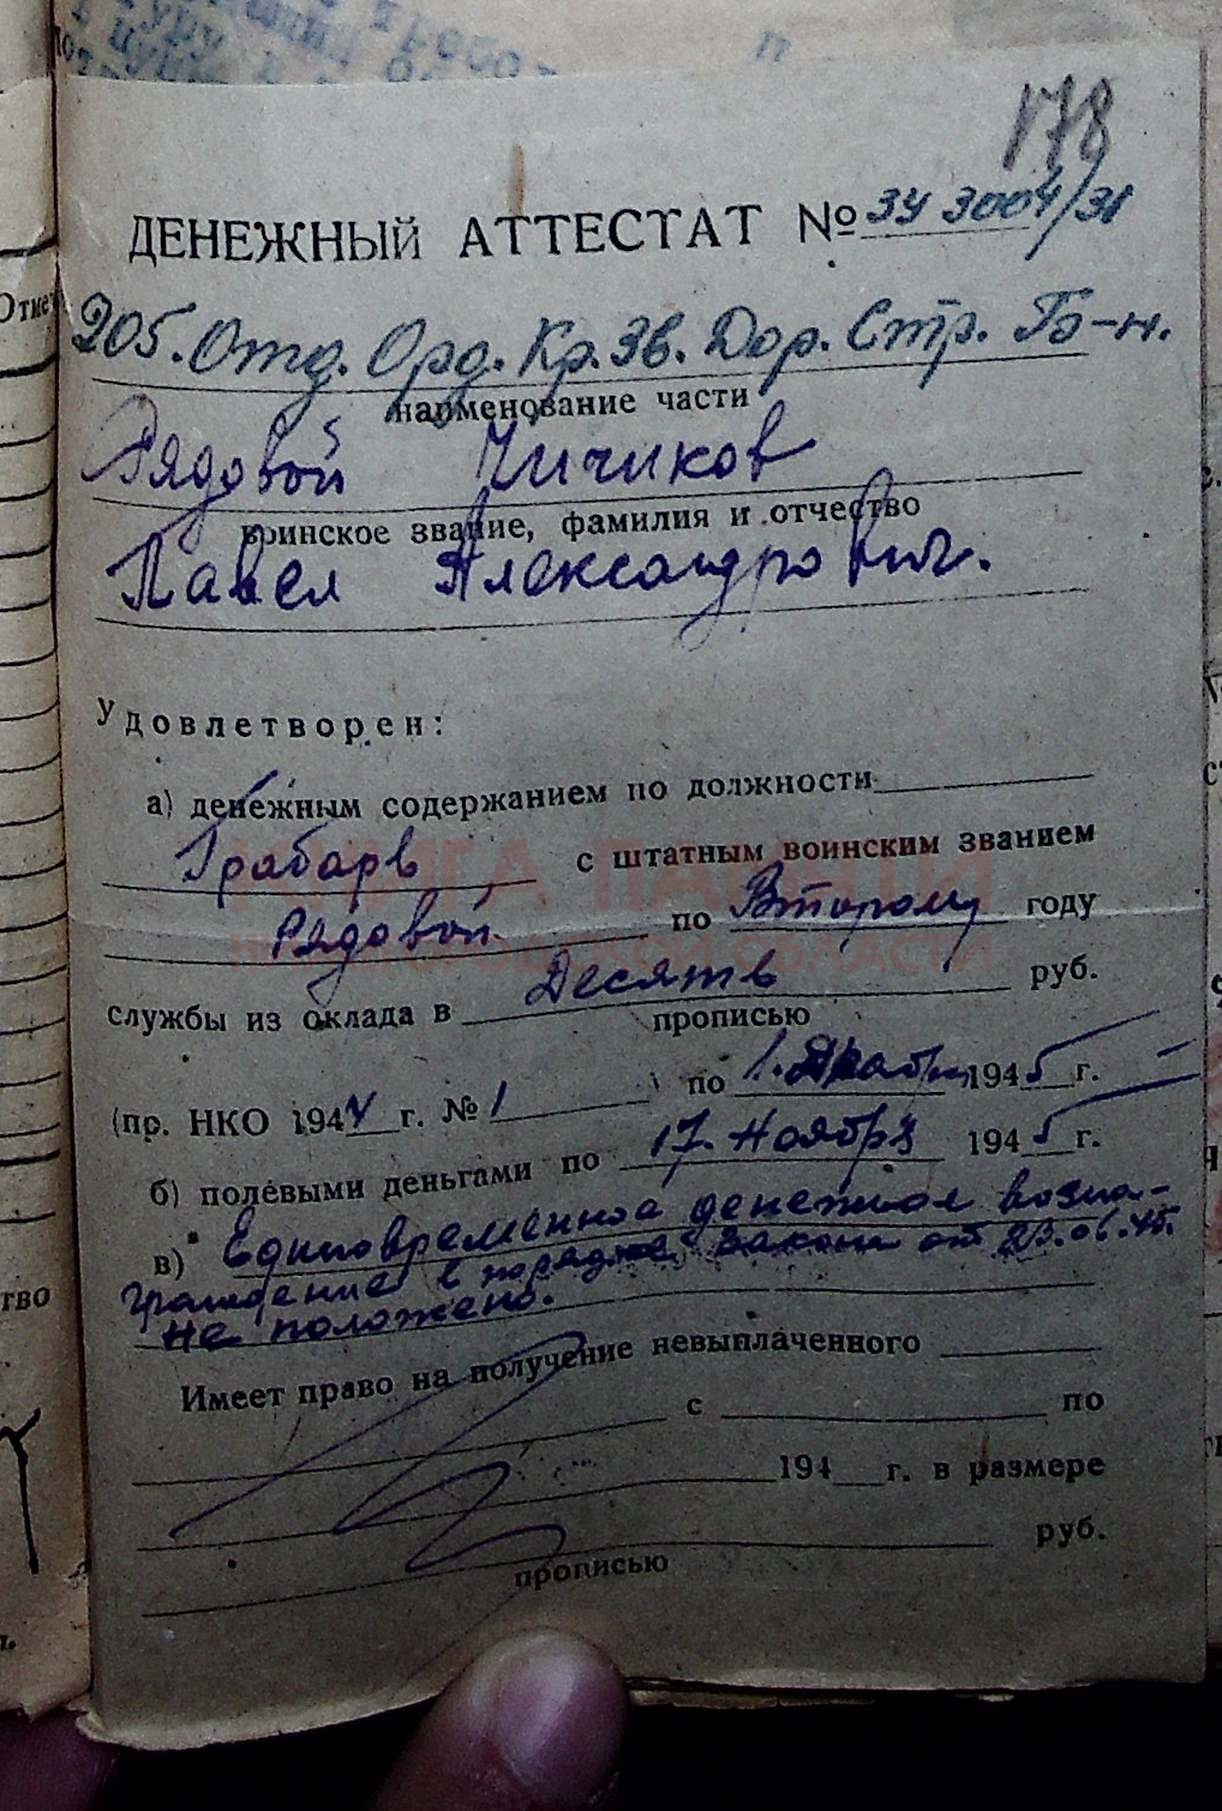 178
ДЕНЕЖНЫЙ АТТЕСТАТ № ЗУ 3004/31
205. Отд. Орд. Кр. Зв. Дор. Стр. Б-н.
наименование части
Рядовой Чичиков
воинское звание, фамилия и отчество
Павел Александрович.
Удовлетворен:
а) денежным содержанием по должности
Грабарь с штатным воинским званием
Рядовой по Второму году
службы из оклада в Десять руб.
прописью
(пр. НКО 1944 г. № 1 по 1. 1945 г.
б) полевыми деньгами по 17. Ноября 1945 г.
в) Единовременное денежное возна-
граждение в порядке закона от 23.06.45.
не положено.
Имеет право на получение невыплаченного
с по
194 г. в размере
руб.
прописью
КНИГА ПАМЯТИ
НИЖЕГОРОДСКОЙ ОБЛАСТИ
Отме
тво